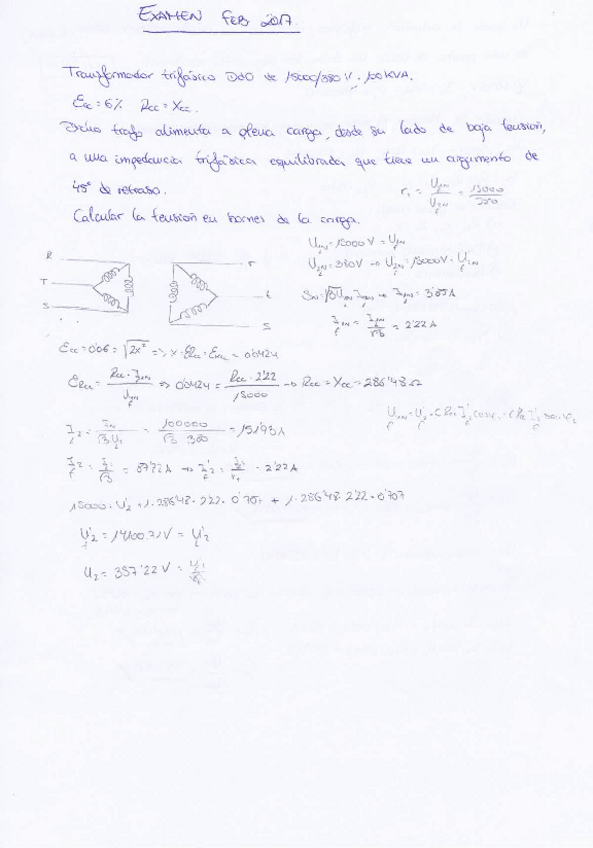 EXAMEN FEB 2017.
Transformador trifásico Dd0 de 15000/380 V. 100 KVA.
Ecc = 6% Rcc = Xcc.
Dicho trafo alimenta a plena carga, desde su lado de baja tensión,
a una impedancia trifásica equilibrada que tiene un argumento de
45° de retraso.
Calcular la tensión en bornes de la carga.
rt = U1N/U2N = 15000/380
R
T
S
r
t
s
U1N = 15000 V = U1N
U2N = 380V → U'2N = 15000V = U'2N
SN = √3 U1N I1N → I1N = 3'85 A
I1N = I1N/√3 = 2'22 A
Ecc = 0'06 = √2x² => x = ERcc = EXcc = 0'0424
ERcc = Rcc · I1N / U1N => 0'0424 = Rcc · 2'22 / 15000 → Rcc = Xcc = 286'48 Ω
U1N = U'2 + C Rcc I'2 cos φ2 + C Xcc I'2 sen φ2
I2 = SN / √3 U2 = 100000 / √3 380 = 151'93 A
I2 = I2/√3 = 87'72 A → I'2 = I2/rt = 2'22 A
15000 = U'2 + 1 · 286'48 · 2'22 · 0'707 + 1 · 286'48 · 2'22 · 0'707
U'2 = 14100.71 V = U'2
U2 = 357'22 V = U'2/rt